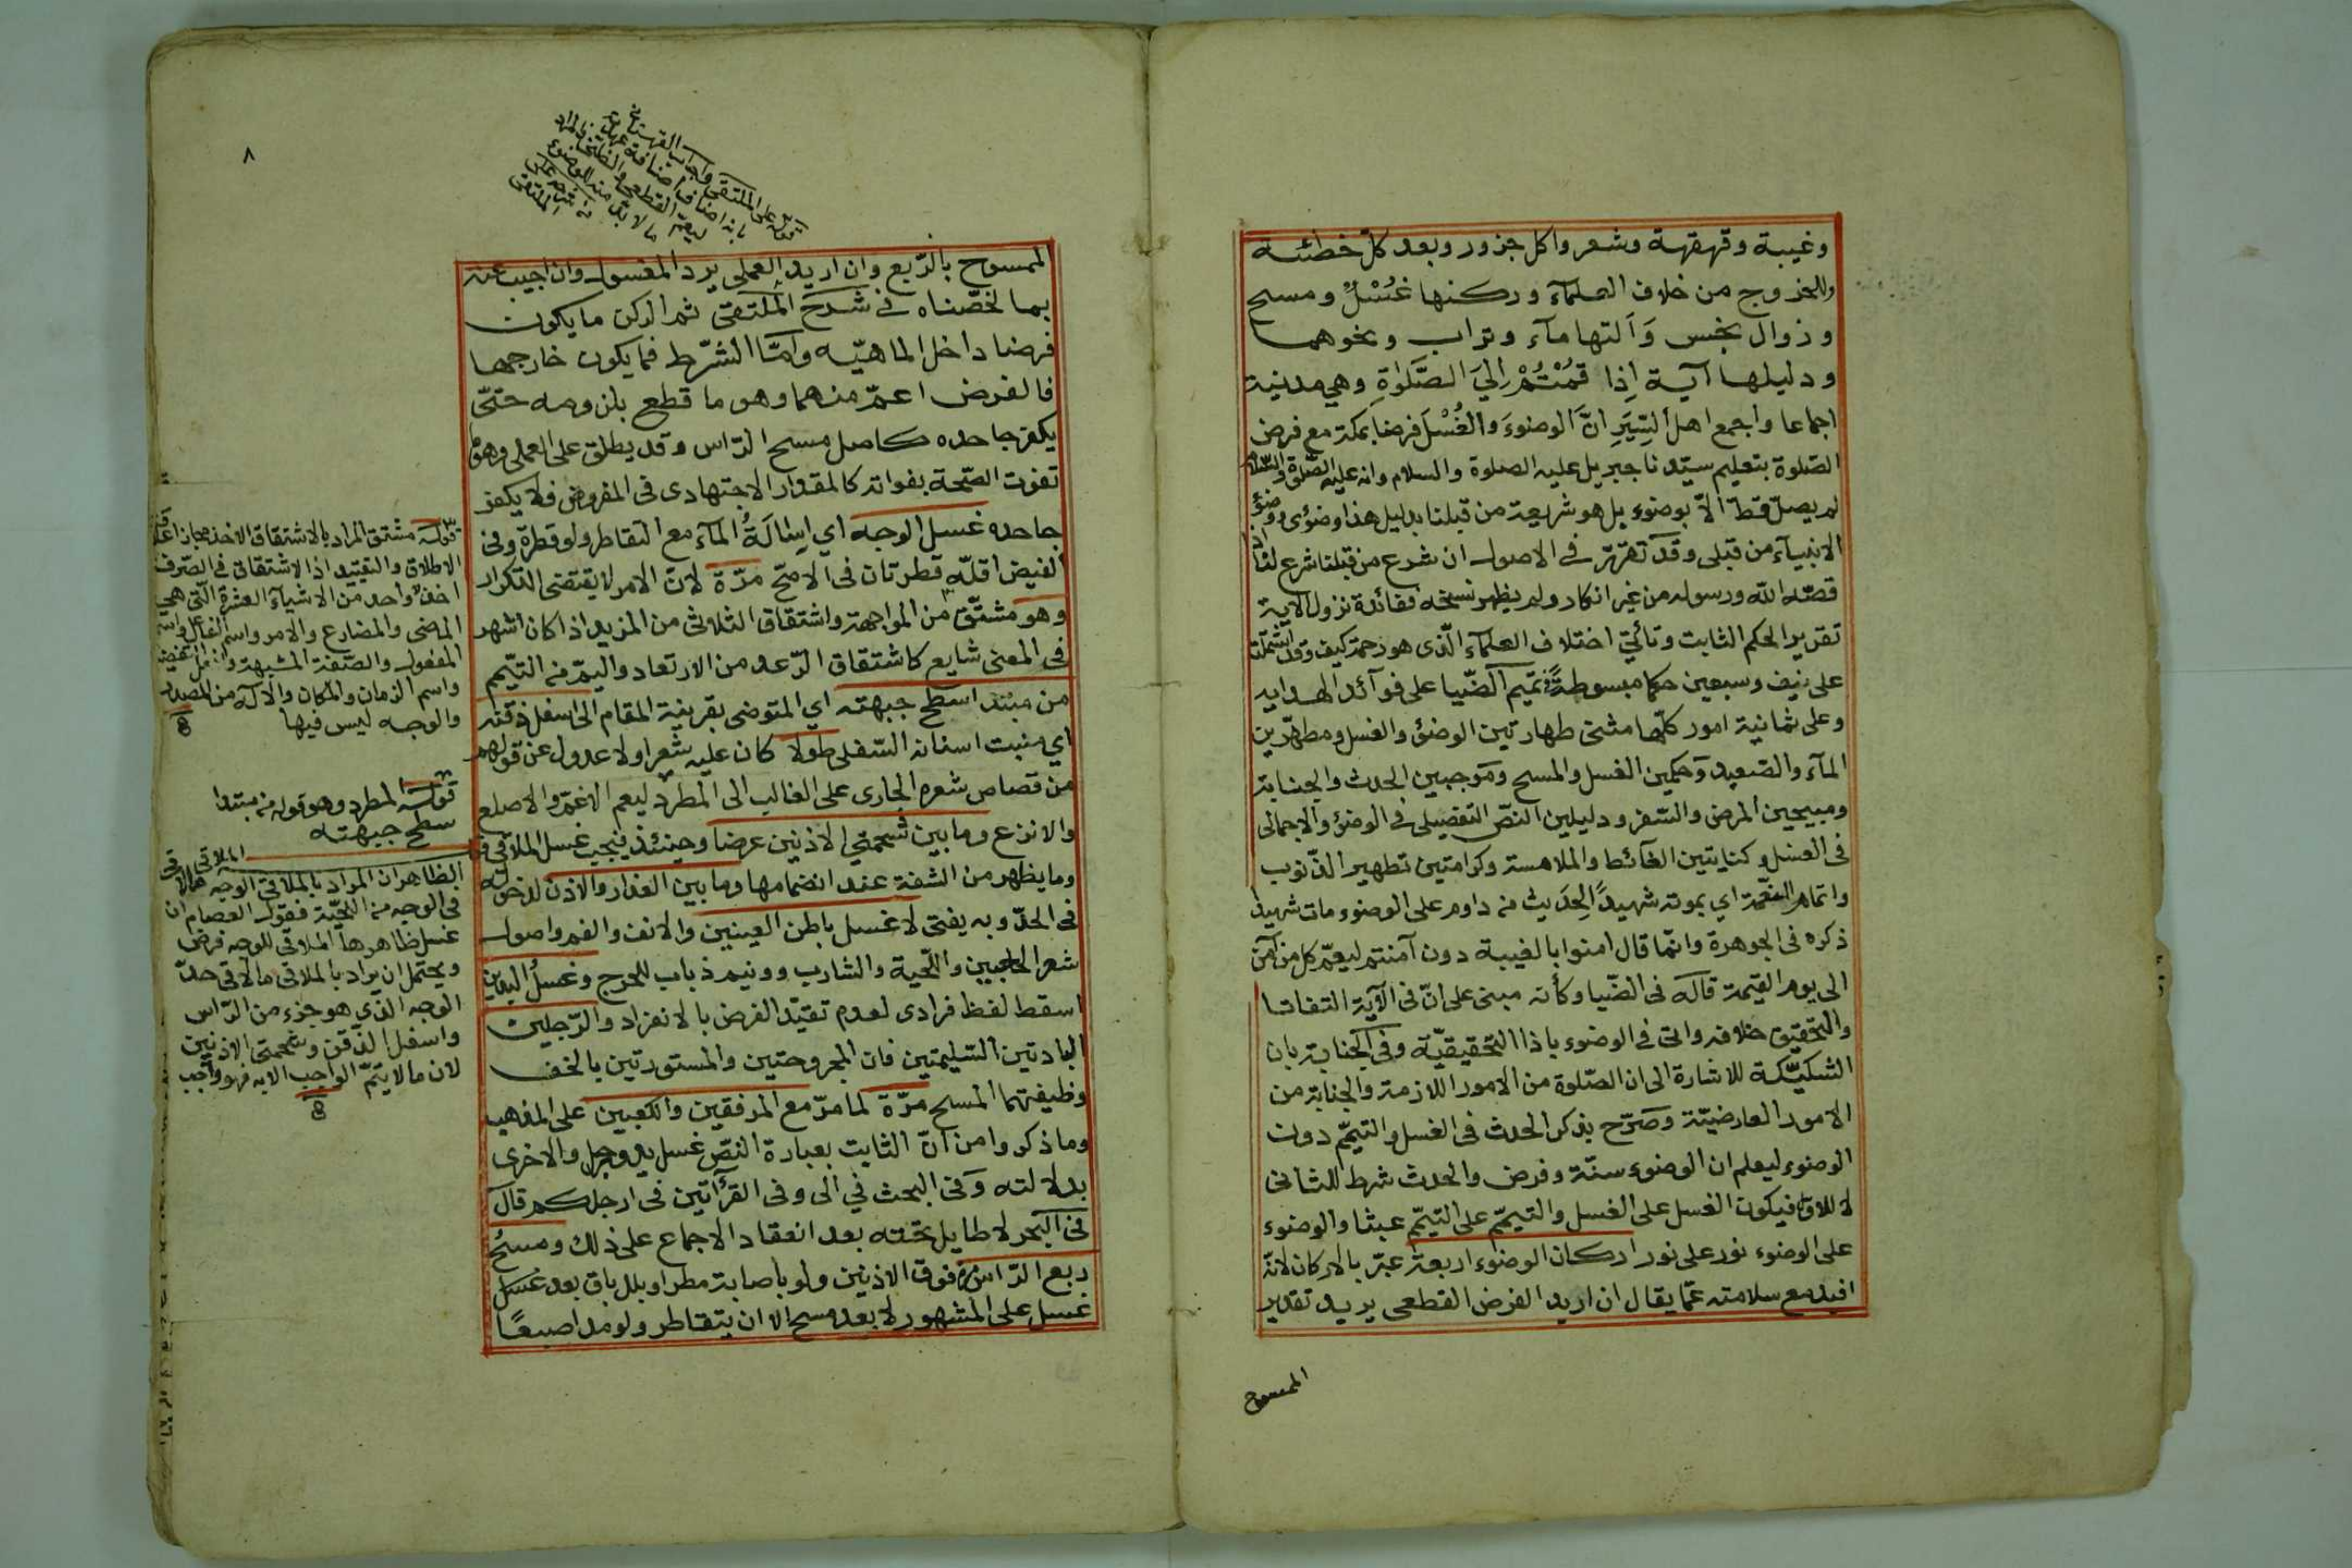 وغيبة وقهقهة وشعر واكل جزور وبعد كلّ خطئة
وللخروج من خلاف العلمآء وركنها غُسْلٌ ومسح
وزوال نجس وَآلتها مآء وتراب ونحوهما
ودليلها آية اِذا قُمْتُمْ اِلَيَ الصَّلوٰةِ وهي مدنية
اجماعا واجمع اهل السِّيَرِ انَّ الوضوءَ والغُسْلَ فرضا بمكة مع فرض
الصّلوة بتعليم سيّدنا جبريل عليه الصلوة والسلام وانه عليه الصّلوة والسّلام
لم يصلّ قطّ الّا بوضوء بل هو شريعة من قبلنا بدليل هذا وضوئى ووضوء
الانبيآء من قبلى وقد تقرّر فى الاصول ان شرع من قبلنا شرع لنا اذا
قصّه الله ورسوله من غير انكار ولم يظهر نسخه ففائدة نزول الاية
تقرير الحكم الثابت وتأتيّ اختلاف العلمآء الّذى هو رحمة كيف وقد اشتملت
على نيف وسبعين حكما مبسوطةً فى تيمم الضّيا على فوآئد الهدايه
وعلى ثمانية امور كلّها مثنى طهارتين الوضؤ والغسل ومطهّرين
المآء والصّعيد وَحكمين الغسل والمسح وَموجبين الحدث والجنابة
ومبيحين المرض والسّفر ودليلين النصّ التفصيلى فى الوضؤ والاجمالى
فى الغسل وكنايتين الغآئط والملامسة وكرامتين تطهير الذّنوب
واتمام النعّمة اي بموته شهيداً لِحَديث من داوم على الوضوء مات شهيدا
ذكره فى الجوهرة وانّما قال امنوا بالغيبة دون آمنتم ليعمّ كل من آمن
الى يوم القيمة قاله فى الضّيا وكأنه مبنى على انّ فى الآية التفاتا
والتحقيق خلافه واتى فى الوضوء باذا التحقيقيّة وفى الجنابة بان
التشكيكيّة للاشارة الى ان الصّلوة من الامور اللازمة والجنابة من
الامور العارضيّة وصَرّح بذكر الحدث فى الغسل والتيمّم دون
الوضوء ليعلم ان الوضوء سنّة وفرض والحدث شرط للثانى
لا للاول فيكون الغسل على الغسل والتيمّم على التيمّم عبثا والوضوء
على الوضوء نور على نور اركان الوضوء اربعة عبّر بالاركان لانّه
افيد مع سلامته عمّا يقال ان اريد الفرض القطعى يريد تقدير
الممسوح
٨
الممسوح بالرّبع وان اريد العملى يرد المغسول وان اجيب عنه
بما لخصّناه فى شرح الملتقى ثم الركن ما يكون
فرضا داخل الماهيّه وامّا الشّرط فما يكون خارجها
فالفرض اعمّ منهما وهو ما قطع بلزومه حتّى
يكفر جاحده كاصل مسح الرّاس وقد يطلق على العملى وهو ما
تفوت الصّحة بفواته كالمقدار الاجتهادى فى المفروض فلا يكفر
جاحده غسل الوجه اي اِسَالَةُ المآء مع التقاطر ولو قطرة وفى
الفيض اقلّه قطرتان فى الاصحّ مرّة لانّ الامر لا يقتضى التكرار
وهو مشتّق من المواجهة واشتقاق الثلاثى من المزيد اذا كان اشهر
فى المعنى شايع كاشتقاق الرّعد من الارتعاد واليمّ من التيّمم
من مبتد اسطح جبهته اي المتوضى بقرينة المقام الى اسفل ذقنه
اي منبت اسنانه السّفلى طولا كان عليه شعر او لا عدول عن قولهم
من قصاص شعره الجارى على الغالب الى المطرد ليعم الاغمّ والاصلع
والانزع وما بين شحمتي الاذنين عرضا وحينئذ فيجب غسل الملاقى
وما يظهر من الشفة عند انضمامها وما بين العذار والاذن لدخوله
فى الحدّ وبه يفتى لا غسل باطن العينين والانف والفم واصول
شعر الحاجبين واللّحية والشارب وونيم ذباب للحرج وغسلُ اليدين
اسقط لفظ فرادى لعدم تقيّد الفرض بالانفراد والرّجلين
البادتين السّليمتين فان المجروحتين والمستورتين بالخف
وظيفتهما المسح مرّة لما مرّ مع المرفقين والكعبين على المذهب
وما ذكروا من انّ الثابت بعبارة النصّ غسل يد ورجل والاخرى
بدلالته وَفى البحث في الى وفى القرأتين فى ارجلكم قال
فى البحر لا طايل تحته بعد انعقاد الاجماع على ذلك ومسحُ
ربع الرّاس مرة فوق الاذنين ولو باصابة مطر او بلل باق بعد غسل
غسل على المشهور لا بعد مسح الا ان يتقاطر ولو مد اصبعًا
قوله مشتق المراد بالاشتقاق الاخذ مجازا
الاطلاق والتقييد اذ الاشتقاق فى الصّرف
اخذ واحد من الاشيآء العشرة الّتى هي
الماضى والمضارع والامر واسم الفاعل واسم
المفعول والصّفة المشبهة وافعل
واسم الزمان والمكان والآلة من المصدر
والوجه ليس فيها
قوله المطرد وهو قوله من مبتدا
سطح جبهته
الملاقى
الظاهر ان المراد بالملاقى الوجه مالاقى
فى الوجه من اللّحيّة فقول العصام ان
غسل ظاهرها الملاقى للوجه فرض
ويحتمل ان يراد بالملاقى مالاقى حدّ
الوجه الذي هو جزء من الرّاس
واسفل الذّقن وشحمتى الاذنين
لان مالا يتمّ الواجب الا به فهو واجب